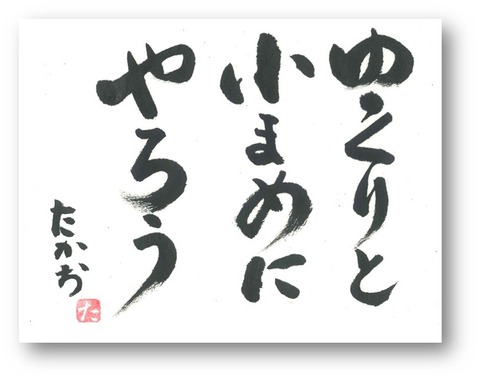 ゆっくりと
小まめに
やろう
たかお
た